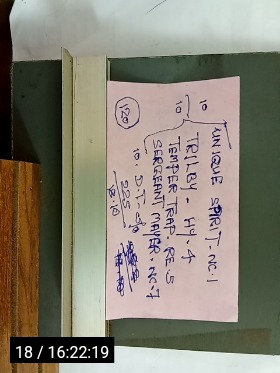 10 UNIQUE SPIRIT NC.1
10 TRILBY - HY.4
TEMPER TRAP. RE.5
SERGEANT MAYER. NC.7
120
10. D.T.
225
18 / 16:22:19